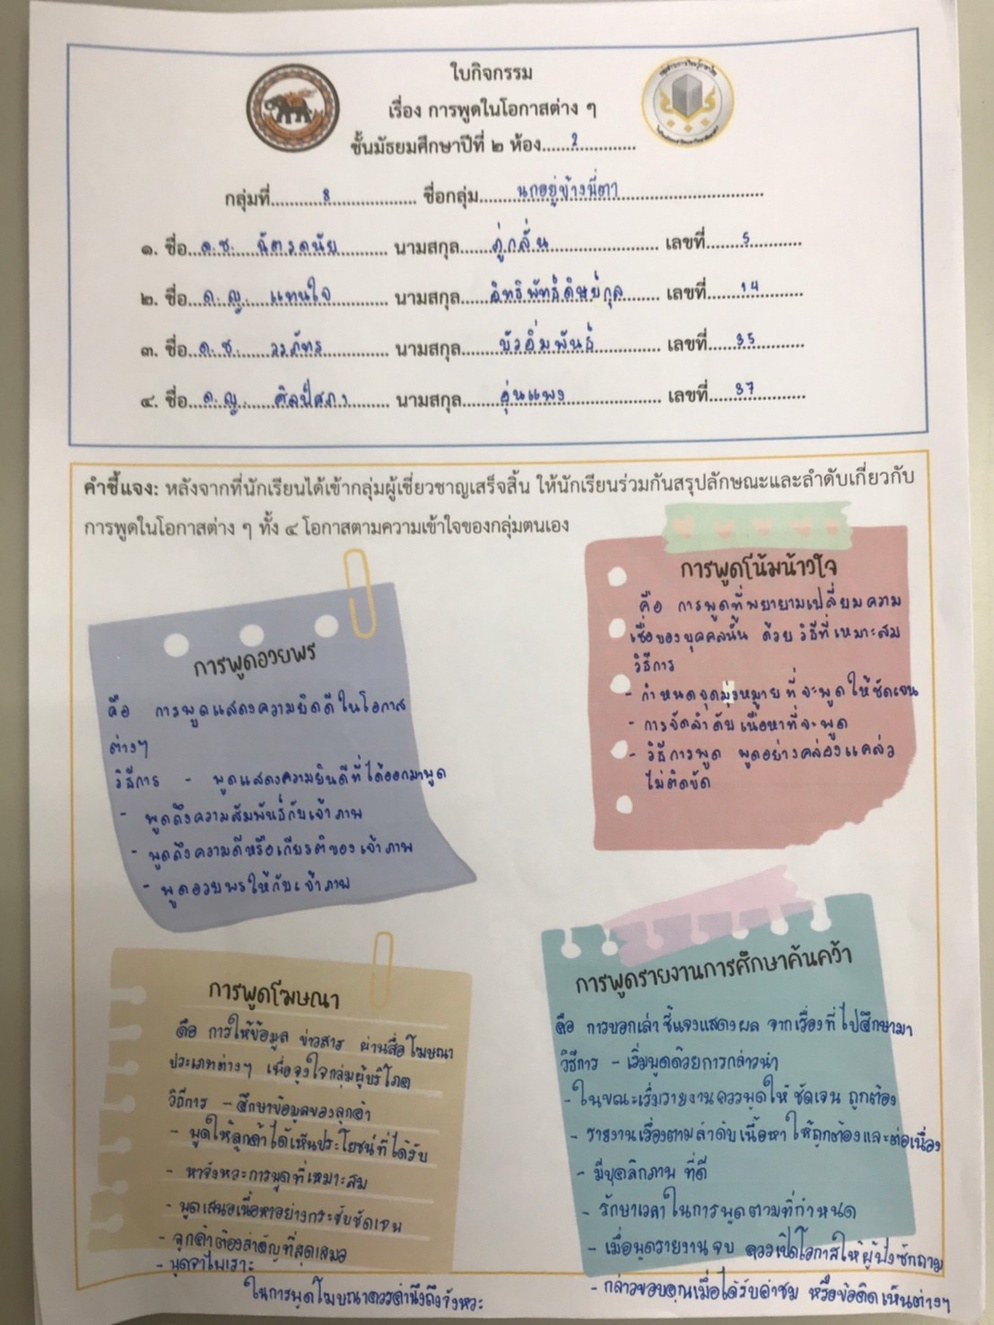 ใบกิจกรรม
เรื่อง การพูดในโอกาสต่าง ๆ
ชั้นมัธยมศึกษาปีที่ ๒ ห้อง......2...................
กลุ่มที่...........8.................. ชื่อกลุ่ม.......นกอยู่ข้างพี่ตา..............................
๑. ชื่อ..ด.ช. ฉัตรดนัย.......... นามสกุล......ภู่กลั่น...................... เลขที่......5...........
๒. ชื่อ..ด.ญ. แทนใจ.......... นามสกุล......สิทธิพัทธ์ดิษย์กุล....... เลขที่......14.........
๓. ชื่อ..ด.ช. วรภัทร............ นามสกุล.......บัวอิ่มพันธ์............. เลขที่......35.........
๔. ชื่อ..ด.ญ. ศิลป์ศภา........ นามสกุล.......อุ่นแพง................... เลขที่.....37..........
คำชี้แจง: หลังจากที่นักเรียนได้เข้ากลุ่มผู้เชี่ยวชาญเสร็จสิ้น ให้นักเรียนร่วมกันสรุปลักษณะและลำดับเกี่ยวกับ
การพูดในโอกาสต่าง ๆ ทั้ง ๔ โอกาสตามความเข้าใจของกลุ่มตนเอง
การพูดอวยพร
คือ การพูดแสดงความยินดีในโอกาส
ต่างๆ
วิธีการ - พูดแสดงความยินดีที่ได้ออกมาพูด
- พูดถึงความสัมพันธ์กับเจ้าภาพ
- พูดถึงความดีหรือเกียรติของเจ้าภาพ
- พูดอวยพรให้กับเจ้าภาพ
การพูดโน้มน้าวใจ
คือ การพูดที่พยายามเปลี่ยนความ
เชื่อของบุคคลนั้น ด้วยวิธีที่เหมาะสม
วิธีการ
- กำหนดจุดมุ่งหมายที่จะพูดให้ชัดเจน
- การจัดลำดับเนื้อหาที่จะพูด
- วิธีการพูด พูดอย่างคล่องแคล่ว
ไม่ติดขัด
การพูดโฆษณา
คือ การให้ข้อมูล ข่าวสาร ผ่านสื่อโฆษณา
ประเภทต่างๆ เพื่อจูงใจกลุ่มผู้บริโภค
วิธีการ - ศึกษาข้อมูลของลูกค้า
- พูดให้ลูกค้าได้เห็นประโยชน์ที่ได้รับ
- หาจังหวะการพูดที่เหมาะสม
- พูดเสนอเนื้อหาอย่างกระชับชัดเจน
- ลูกค้าต้องสำคัญที่สุดเสมอ
- พูดจาไพเราะ
ในการพูดโฆษณาควรคำนึงถึงจังหวะ
การพูดรายงานการศึกษาค้นคว้า
คือ การบอกเล่า ชี้แจงแสดงผล จากเรื่องที่ไปศึกษามา
วิธีการ - เริ่มพูดด้วยการกล่าวนำ
- ในขณะเริ่มรายงานควรพูดให้ชัดเจน ถูกต้อง
- รายงานเรื่องตามลำดับเนื้อหาให้ถูกต้องและต่อเนื่อง
- มีบุคลิกภาพ ที่ดี
- รักษาเวลาในการพูดตามที่กำหนด
- เมื่อพูดรายงานจบ ควรเปิดโอกาสให้ผู้ฟังซักถาม
- กล่าวขอบคุณเมื่อได้รับคำชม หรือข้อคิดเห็นต่างๆ